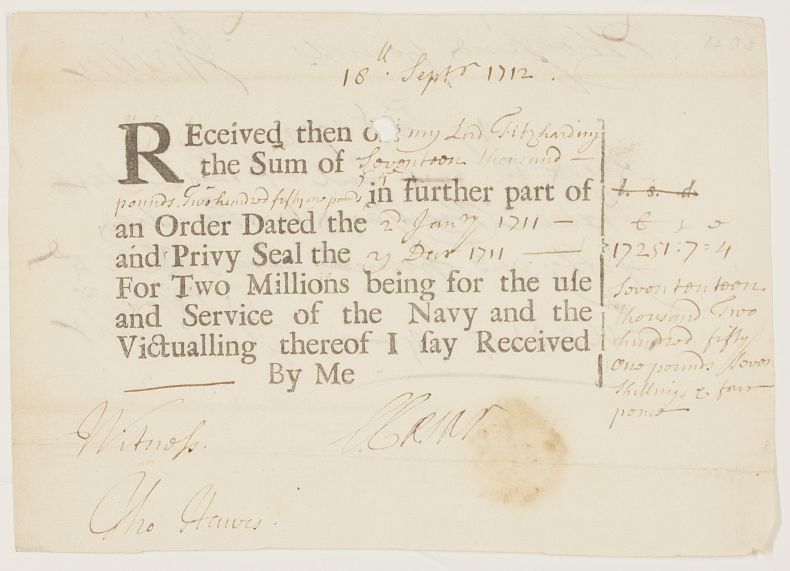 18th. Septr 1712.
REceived then of my Lord Fitzharding
the Sum of Seventeen thousand —
pounds. Two hundred fifty one pounds 7s 4d in further part of
an Order Dated the 2d Janry 1711 —
and Privy Seal the 29 Decr 1711 —
For Two Millions being for the uſe
and Service of the Navy and the
Victualling thereof I ſay Received
By Me
l. s. d.
17251:7=4
Sevententeen
thousand Two
hundred fifty
one pounds seven
shillings & four
pence
Witness.
Tho Hawes.